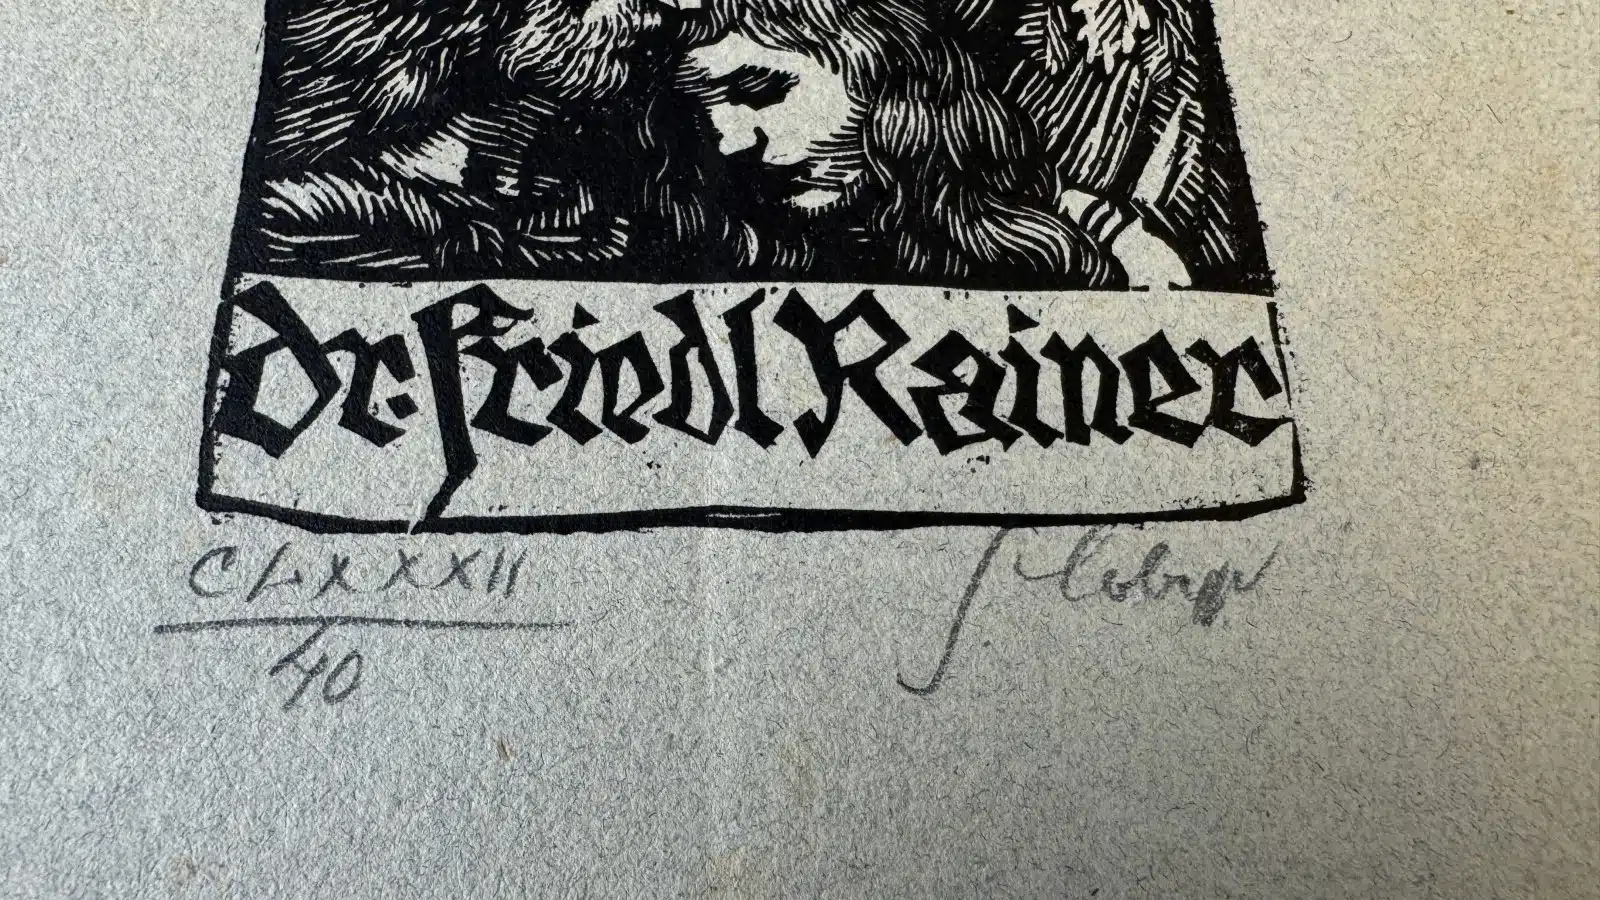 dr. Friedl Rainer
CLXXXII
40